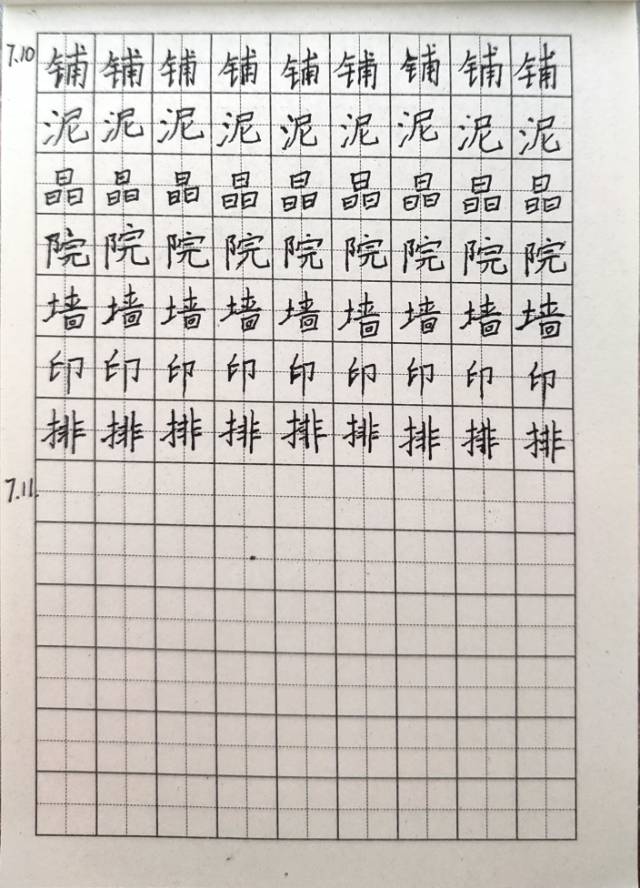 7.10 铺铺铺铺铺铺铺铺铺
泥泥泥泥泥泥泥泥泥
晶晶晶晶晶晶晶晶晶
院院院院院院院院院
墙墙墙墙墙墙墙墙墙
印印印印印印印印印
排排排排排排排排排
7.11.